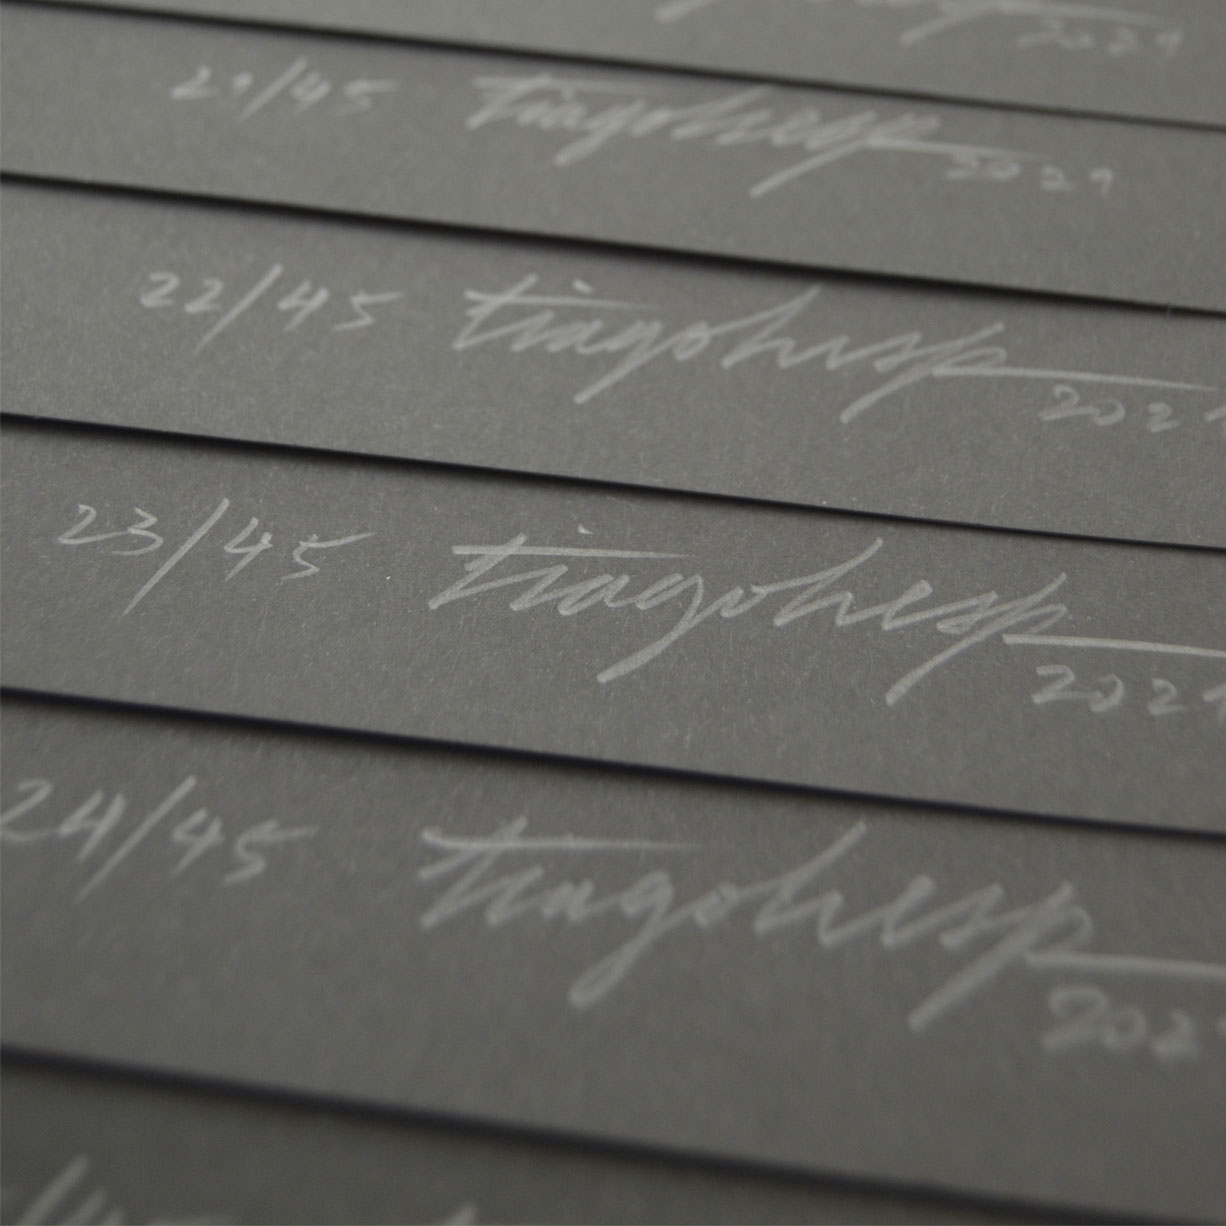 2021
21/45 tiagohesp 2021
22/45 tiagohesp
2021
23/45 tiagohesp
2021
24/45 tiagohesp
202